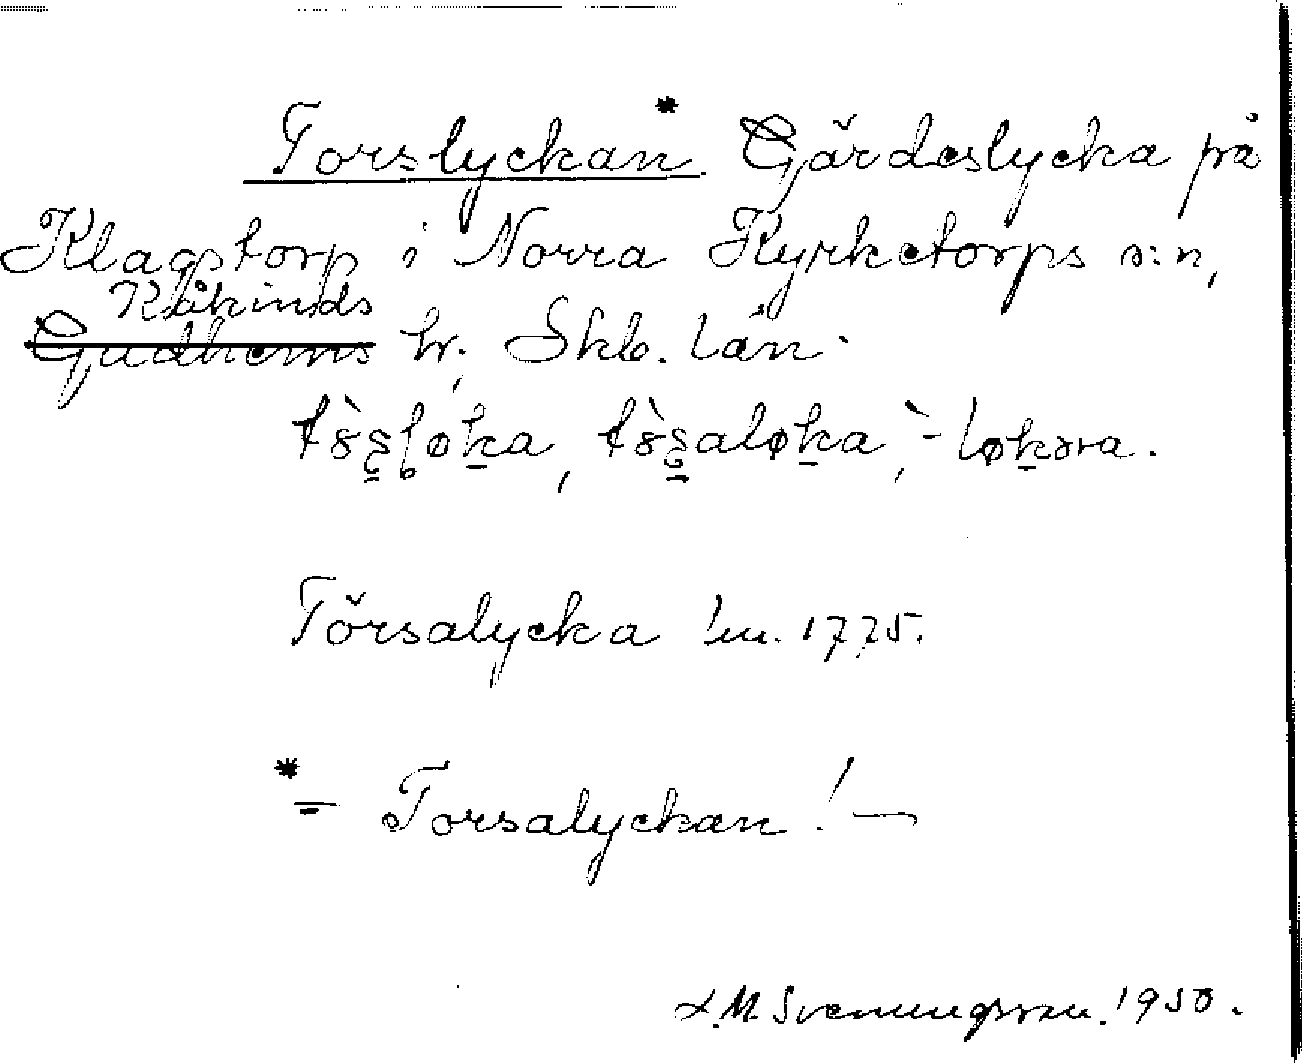 Torslyckan.* Gärdeslycka på
Klagstorp i Norra Kyrketorps s:n,
Kåkinds
Gudhems hr, Skb. län.
Törsalycka lm. 1775.
* = Torsalyckan! —
S. M. Svenungsson. 1950.